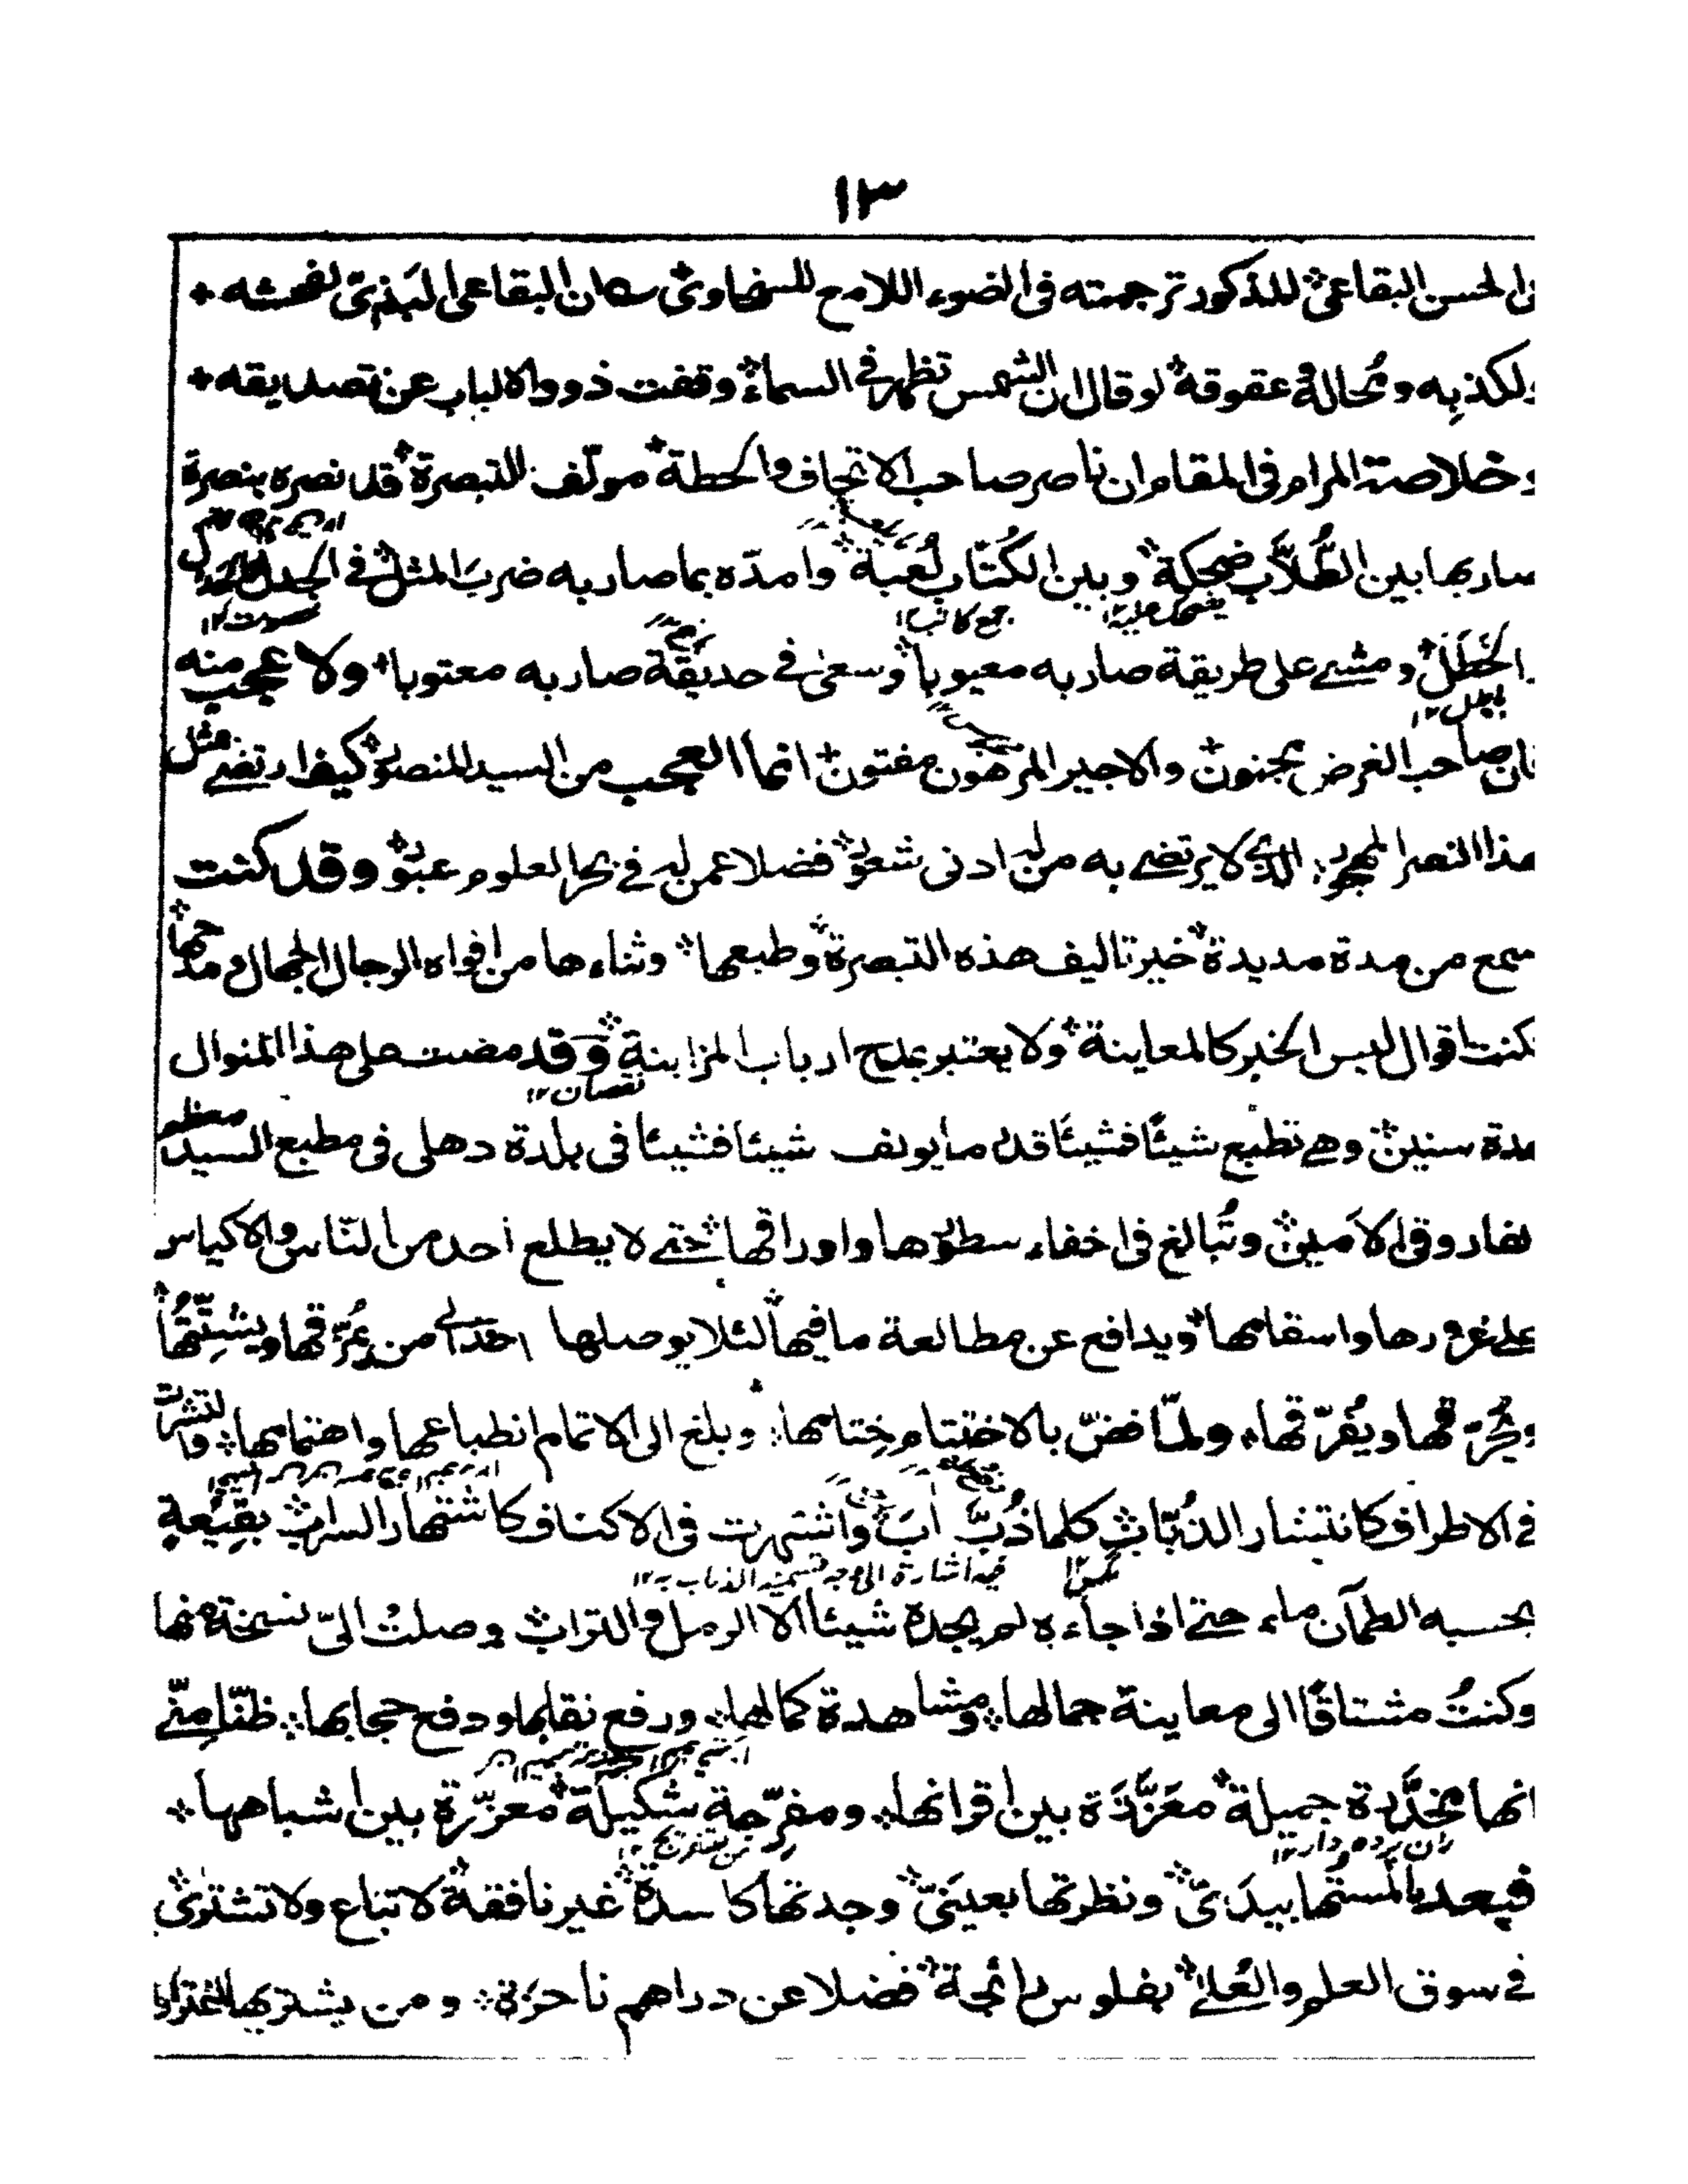 ١٣
الحسن البقاعي المذكور ترجمته فى الضوء اللامع للسخاوى كان البقاعى البذى لفحشه +
ولكذبه وعقوقه لو قال ان الشمس تظهر فى السماء وقفت ذوو الالباب عن تصديقه +
وخلاصة المرام فى المقام ان ناصر صاحب الاتحاف والحطة مولّف التبصرة قد نصره بنصرة
صار بها بين الطُّلّاب ضحكة وبين الكُتّاب لُعبة وامدّه بما صار به ضربَ المثل فى الجدل
يضحك عليه١٢ جمع كاتب١٢ خصومت١٢
الخَطَل ومشے على طريقة صار به معيوبا وسعىٰ فے حديقة صار به معتوبا + ولا عجب منه
فان صاحب الغرض مجنون والاجير المرهون مفتون انما العجب من السيد المنصور كيف ارتضے مثل
هذا النصر المهجور الذى لا يرتضے به من له ادنى شعور فضلا عمن له فى بحر العلوم عبور وقد كنت
سمع من مدة مديدة خبر تاليف هذه التبصرة وطبعها وثناءها من افواه الرجال الجهال ومدحها
كنت اقول ليس الخبر كالمعاينة ولا يعتبر بمدح ارباب المزابنة وقد مضت على هذا المنوال
نقصان١٢
مدة سنين وهے تطبع شيئًا فشيئًا قدر ما يولف شيئا فشيئا فى بلدة دهلى فى مطبع السيد معظم
الفاروقى الامين وتُبالغ فى اخفاء سطورها واوراقها حتے لا يطلع احد من النّاس والاكياس
علے غرورها واسقامها ويدافع عن مطالعة ما فيها لئلا يوصلها احد الى من يمزّقها ويشتّتها
ويُحرّقها ويفرّقها ولمّا فضّ بالاختتام ختامها وبلغ الى الاتمام انطباعها واهتمامها وانتشرت
فے الاطراف كانتشار الذُبّاب كلما ذُبّ ابَ واشتهرت فى الاكناف كاشتهار السراب بقيعةٍ
فيه اشارة الى وجه تسمية الذباب به١٢
يحسبه الظمآن ماء حتے اذا جاءه لم يجده شيئا الا الرمل والتراب وصلتْ الىّ نسخة منها
وكنتُ مشتاقًا الى معاينة جمالها ومشاهدة كمالها ورفع نقابها ودفع حجابها ظنّا مِنّے
انها مخدَّرة جميلة معَزَّزَة بين اقرانها ومفرّحة شكيلة معزّزة بين اشباهها
زن پرده دار١٢
فبعد ما لمستها بيدَىّ ونظرتها بعينَىّ وجدتها كاسدة غير نافقة لا تباع ولا تشترىٰ
فے سوق العلم والعُلے بفلوس رائجة فضلا عن دراهم ناحزة ومن يشتريها